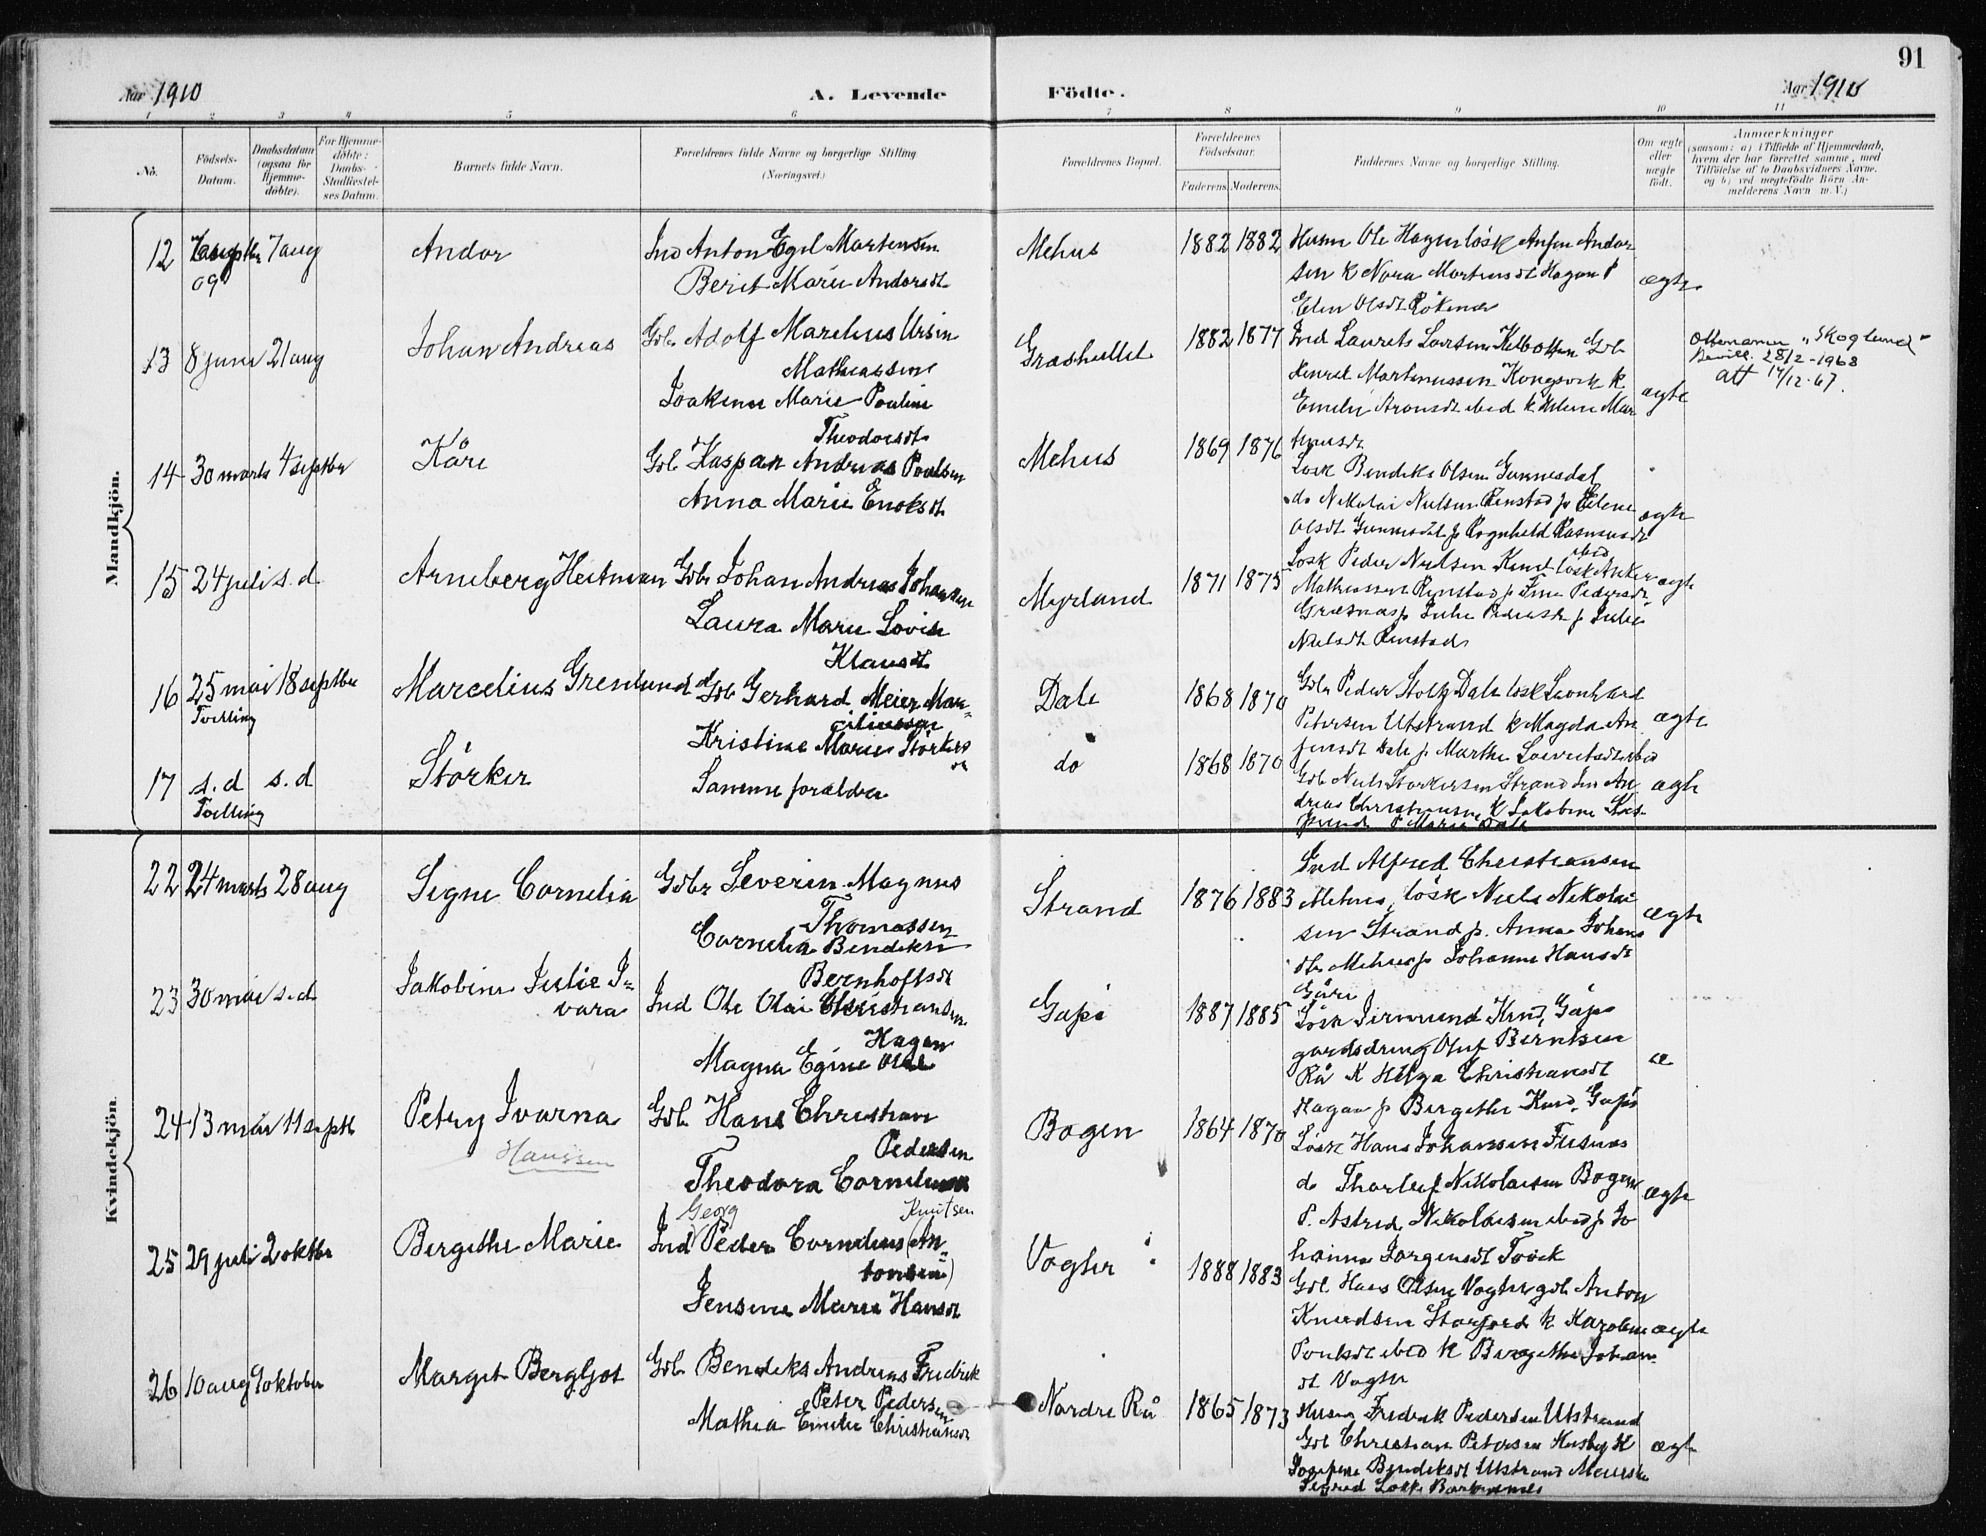 91
Aar 1910
A. Levende
Födte.
Aar 1910
1 2 3 4 5 6 7 8 9 10 11
No.
Födsels-
Datum.
Daabsdatum
(ogsaa for
Hjemme-
döbte).
For Hjemme-
döbte:
Daabs-
Stadfæstel-
ses Datum.
Barnets fulde Navn.
Forældrenes fulde Navne og borgerlige Stilling
(Næringsvei.)
Forældrenes Bopæl.
Forældrenes
Födselsaar.
Faderens. Moderens.
Faddernes Navne og borgerlige Stilling.
Om ægte
eller
uægte
födt.
Anmærkninger
(saasom: a) i Tilfælde af Hjemmedaab,
hvem der har forrettet samme, med
Tilföielse af to Daabsvidners Navne.
og b) ved uægtefödte Börn An-
melderens Navn m. V.)
Mandkjön.
12 7 aug
09
Andor
Ind Anton Egil Martensen
Berit Marie Andorsdt
Mehus
1882 1882
Husm Ole Hagen lösk Anfin Andor
sen k Nora Martensdt Hagen p
ægte
13 8 juni 21 aug
Johan Andreas
Gdbr Adolf Marelius Ursin
Mathiassen
Joakime Marie Pauline
Theodorsdt
Grashullet
1882 1877
Ind Laurits Larsen Gdb
Martinussen Kongsvik k
Emelie Aronsdt ibid k Helene Mar
tinusdt
ægte
Ettenavnet "Skoglund"
Bevill. 28/2-1968
att 14/12-67.
14 30 marts 4 septbr
Kåre
Gdb Kaspar Andreas Poulsen
Anna Marie Enoksdt
Mehus
1869 1876
Lösk Bendiks Olsen Gunnesdal
do Nikolai Nielsen Renstad p Elene
Olsdt Gunnesdal p Ragnhild Rasmusdt
ægte
15 24 juli s.d.
Arneberg Heitman
Gdb Johan Andreas Johansen
Laura Marie Lovise
Klausdt
Myrland
1871 1875
Lösk Peder Nielsen lösk Anker
ibid
Mathiassen Renstad p Pedersdt
Græsnas p Julie Pedersdt p Julie
Nielsdt Renstad
ægte
16 25 mai 18 septbr
Tvilling
Marcelius Grenlund
Gdb Gerhard Meier Mar-
ciliussen
Kristine Marie Störkers
dt
Dale
1868 1870
Gdb Peder Stoltz Dale lösk Leonhard
Petersen Utstrand k Magda An
fensdt Dale p Marthe Lauritsdt ibid
ægte
17 s.d s.d
Tvilling
Störker
Samme forældre
do
1868 1870
Gdb Niels Störkersen Strand An
dreas Christiansen k Jakobine
p Maria Dale
ægte
Kvindekjön.
22 24 marts 28 aug
Signe Cornelia
Gdbr Severin Magnus
Thomassen
Cornelia Bendikte
Bernhoftsdt
Strand
1876 1883
Ind Alfred Christiansen
Mehus, lösk Niels Nikolai
sen Strand p. Anna Johans
dtr Mehus p Johanne Hansdt
Gåre
ægte
23 30 mai s.d.
Jakobine Julie I-
vara
Ind Ole Olai Christiansen
Hagen
Magna Egine Olsdt
Gapö
1887 1885
Lösk Gapö
gardsdreng Oluf Berntsen
Rå k Helga Christiansdt
Hagan p Bergithe Gapö
æ
24 13 mai 11 septb
Petry Ivarna
Hanssen
Gdb Hans Christian
Pedersen
Theodora Corneliusdt
Bogen
1864 1870
Lösk Hans Johansen Fusnæs
do Tharlef Nikolaisen Bogen
P. Astrid Nikolaisen ibid p Jo
hanna Jörgensdt
ægte
25 29 juli 2 oktbr
Bergithe Marie
Georg Knutsen
Ind Peder Cornelius (An
tonsen)
Jensine Marie Hansdt
Vogter
1888 1883
Gdb Hans Olsen Vogter gdb Anton
Knudsen Storjord k Karoline
Poulsdt ibid k Bergithe Johan
dt Vogter
ægte
26 10 aug 9 oktober
Margit Bergljot
Gdb Bendiks Andreas Fredrik
Peter Pedersen
Mathea Emilie Christiansdt
Nordre Rå
1865 1873
Husm Fredrik Pedersen Utstrand
Gdb Christian Petersen Husby k
Josefine Bendiksdt Utstrand
ægte